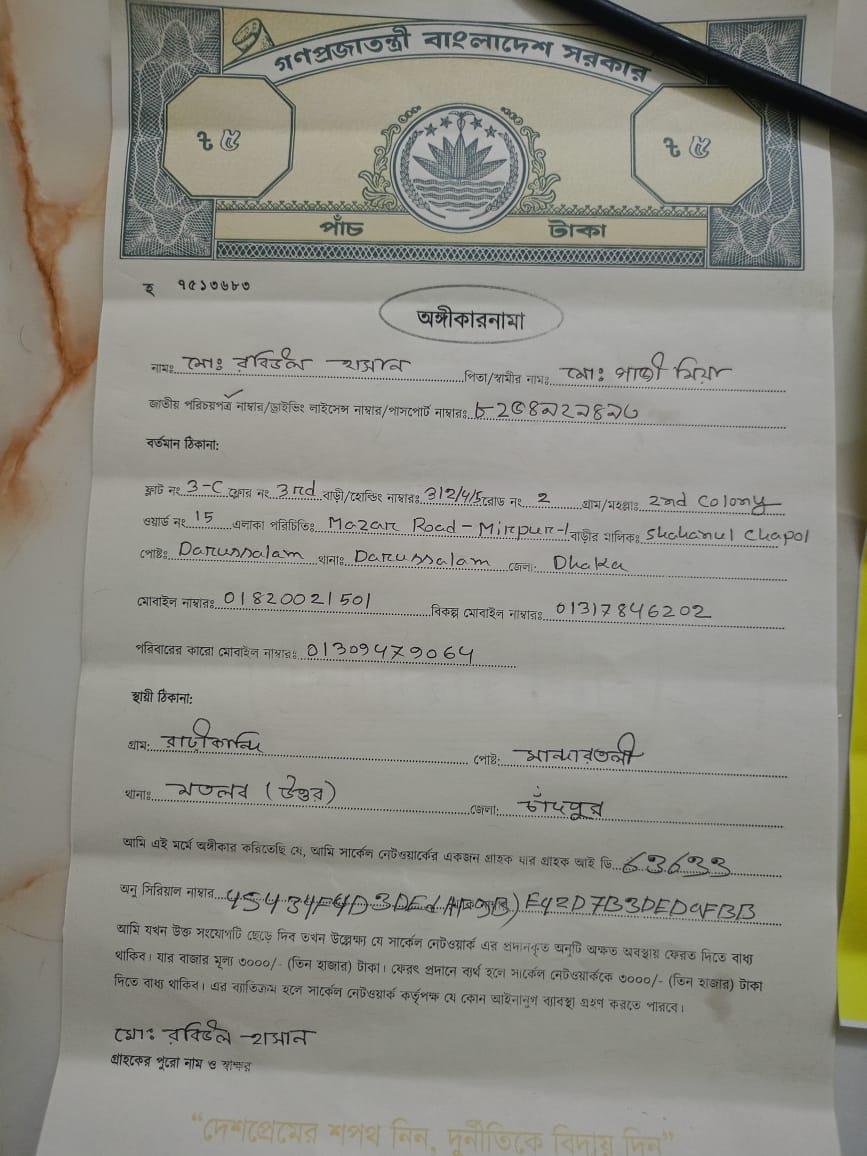 গণপ্রজাতন্ত্রী বাংলাদেশ সরকার
৳ ৫ ৳ ৫
পাঁচ টাকা
হ ৭৫১৩৬৮৩
অঙ্গীকারনামা
নামঃ মোঃ রবিউল হাসান পিতা/স্বামীর নামঃ মোঃ গাজী মিয়া
জাতীয় পরিচয়পত্র নাম্বার/ড্রাইভিং লাইসেন্স নাম্বার/পাসপোর্ট নাম্বারঃ
বর্তমান ঠিকানা:
ফ্লাট নং 3-C ফ্লোর নং 3rd বাড়ী/হোল্ডিং নাম্বারঃ 312/4/5 রোড নং 2 গ্রাম/মহল্লাঃ 2nd Colony
ওয়ার্ড নং 15 এলাকা পরিচিতিঃ Mazar Road-Mirpur-1 বাড়ীর মালিকঃ Shahanul Chapol
পোষ্টঃ Darussalam থানাঃ Darussalam জেলা: Dhaka
মোবাইল নাম্বারঃ 01820021501 বিকল্প মোবাইল নাম্বারঃ 01317846202
পরিবারের কারো মোবাইল নাম্বারঃ 01309479064
স্থায়ী ঠিকানা:
গ্রাম: রাঢ়ীকান্দি পোষ্ট: মান্দারতলী
থানাঃ মতলব (উত্তর) জেলা: চাঁদপুর
আমি এই মর্মে অঙ্গীকার করিতেছি যে, আমি সার্কেল নেটওয়ার্কের একজন গ্রাহক যার গ্রাহক আই ডি 63633
অনু সিরিয়াল নাম্বার
আমি যখন উক্ত সংযোগটি ছেড়ে দিব তখন উল্লেক্ষ্য যে সার্কেল নেটওয়ার্ক এর প্রদানকৃত অনুটি অক্ষত অবস্থায় ফেরত দিতে বাধ্য
থাকিব। যার বাজার মূল্য ৩০০০/- (তিন হাজার) টাকা। ফেরৎ প্রদানে ব্যর্থ হলে সার্কেল নেটওয়ার্ককে ৩০০০/- (তিন হাজার) টাকা
দিতে বাধ্য থাকিব। এর ব্যতিক্রম হলে সার্কেল নেটওয়ার্ক কর্তৃপক্ষ যে কোন আইনানুগ ব্যাবস্থা গ্রহণ করতে পারবে।
মোঃ রবিউল হাসান
গ্রাহকের পুরো নাম ও স্বাক্ষর
“দেশপ্রেমের শপথ নিন, দুর্নীতিকে বিদায় দিন”